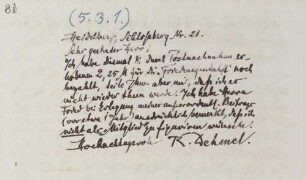 81
(5.3.1)
Heidelberg, Schlossberg No. 21.
Sehr geehrter Herr!
Ich habe diesmal d. durch Postnachnahme er-
hobenen 2,25 M für die Friedensgesellschaft noch
bezahlt, teile Ihnen aber mit, daß ich es
nicht wieder thuen werde. Ich habe Herrn
Fried bei Erlegung meines ausserordentl. Beitrags
(vor etwa 1 Jahr) ausdrücklich bemerkt, daß ich
nicht als Mitglied zu figurieren wünsche.
Hochachtungsvoll R. Dehmel.